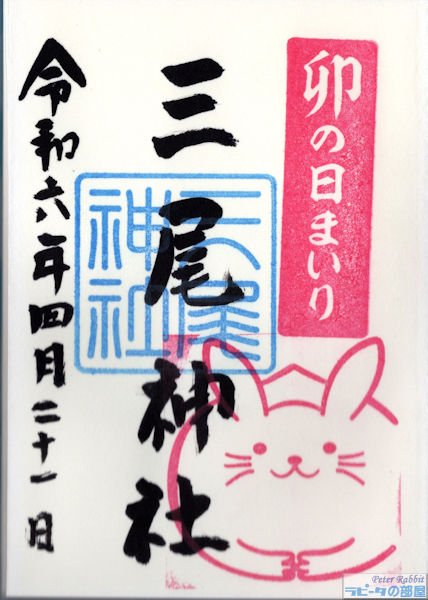 卯の日まいり
三尾神社
三尾神社
令和六年四月二十一日
Peter Rabbit
ラピータの部屋